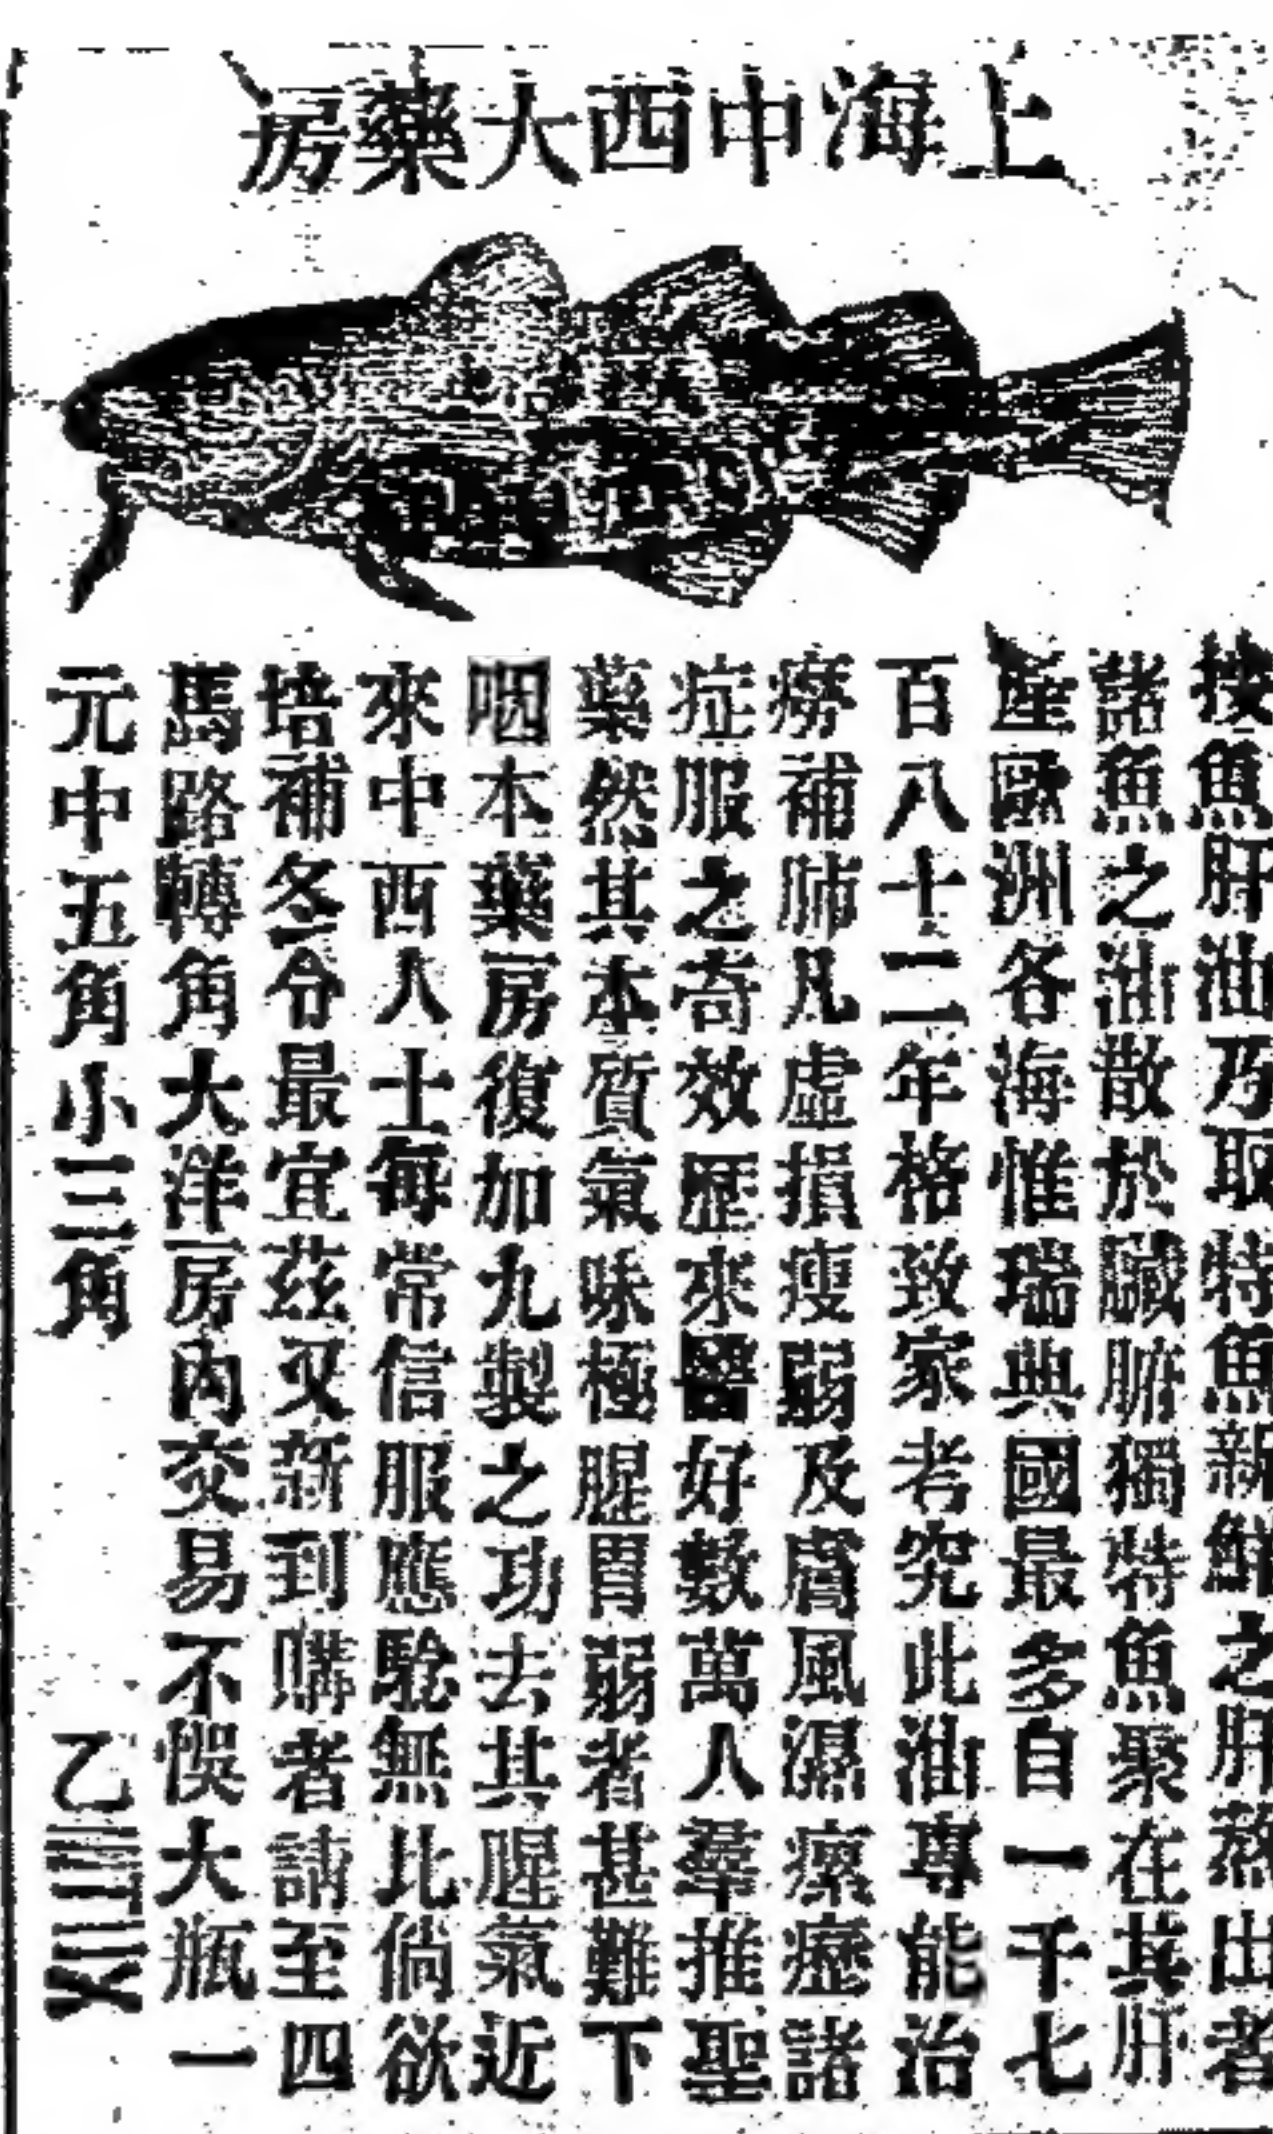 上海中西大藥房
按魚肝油乃取特魚新鮮之肝熬出者
諸魚之油散於臟腑獨特魚聚在其肝
產歐洲各海惟瑞典國最多自一千七
百八十二年格致家考究此油專能治
癆補肺凡虛損瘦弱及膚風濕瘰癧諸
症服之奇效歷來醫好數萬人羣推聖
藥然其本質氣味極腥胃弱者甚難下
咽本藥房復加九製之功去其腥氣近
來中西人士每常信服應騐無比倘欲
培補冬令最宜茲又新到購者請至四
馬路轉角大洋房內交易不悞大瓶一
元中五角小三角
乙